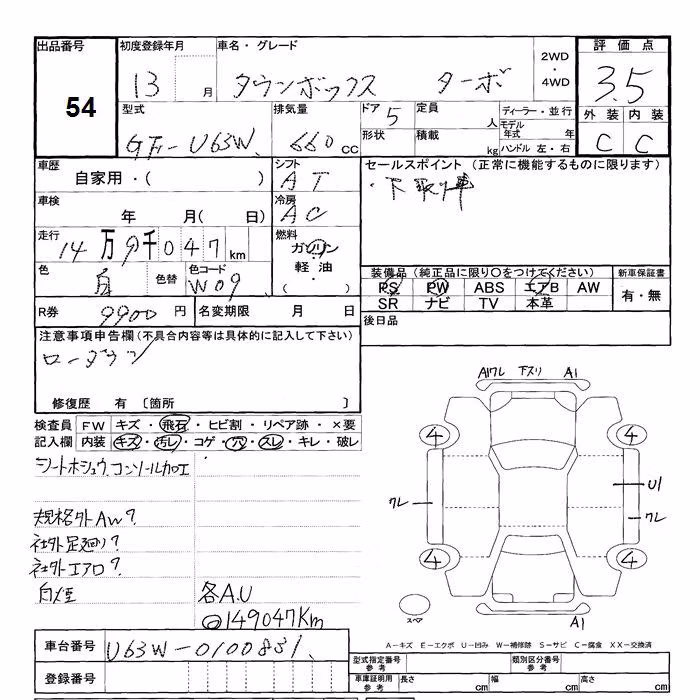 出品番号 初度登録年月 車名・グレード 2WD・4WD 評価点
54 13 月 タウンボックス ターボ 3.5
型式 排気量 ドア 5 定員 人 ディーラー・並行 外装 内装
GF-U63W 660 cc 形状 積載 kg モデル年式 年 ハンドル 左・右 C C
車歴 シフト セールスポイント (正常に機能するものに限ります)
自家用・( ) AT ・下取り車
車検 冷房
年 月( 日) AC
走行 燃料
14万9千047km ガソリン
軽油
・( )
色 色替 色コード 装備品(純正品に限り○をつけてください) 新車保証書
白 W09 PS PW ABS エアB AW 有・無
SR ナビ TV 本革
R券 9900 円 名変期限 月 日 後日品
注意事項申告欄(不具合内容等は具体的に記入して下さい)
ローダウン
修復歴 有 〔箇所 〕
検査員 FW キズ・飛石・ヒビ割・リペア跡・×要
記入欄 内装 キズ・汚レ・コゲ・穴・スレ・キレ・破レ
シートホシュウ、コンソール加工
規格外AW?
社外足廻り?
社外エアロ?
白煙 各A.U
@149047Km
A1ワレ 下スリ A1
4 4
U1
ワレ ワレ
4 4
スペア A1
A−キズ E−エクボ U−凹み W−補修跡 S−サビ C−腐食 XX−交換済
車台番号 U63W-0100831
登録番号
型式指定番号 参考 類別区分番号 参考
車庫証明用 参考 長さ cm 幅 cm 高さ cm